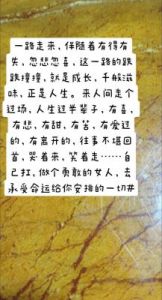 一路走来，伴随着有得有
失，忽悲忽喜，这一路的跌
跌撞撞，就是成长，千般滋
味，正是人生。来人间走个
过场，人生过半辈子，有喜，
有悲，有甜，有苦，有爱过
的，有离开的，往事不堪回
首，哭着来，笑着走……自
己扛，做个勇敢的女人，去
承受命运给你安排的一切#